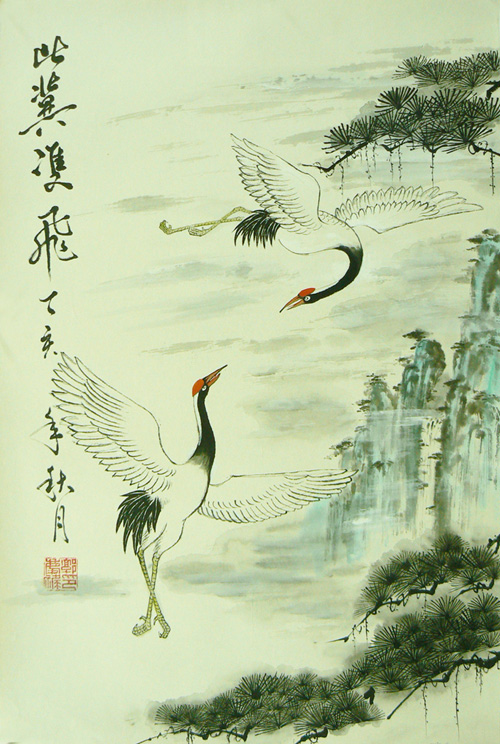 比翼雙飛丁亥年秋月